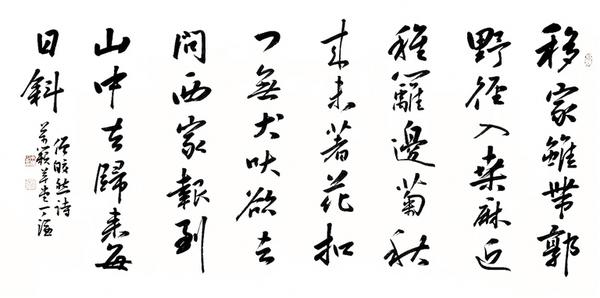 移家雖帶郭
野徑入桑麻近
種籬邊菊秋
来未著花扣
门無犬吠欲去
問西家報到
山中去歸来每
日斜
僧皎然诗